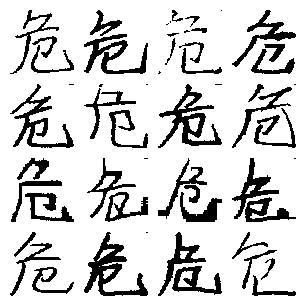 危危危危
危危危危
危危危危
危危危危